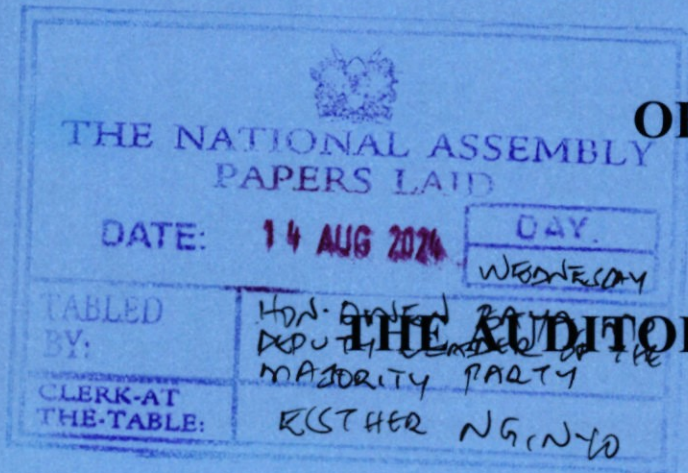 OF
THE NATIONAL ASSEMBLY
PAPERS LAID
DATE: 14 AUG 2024 DAY.
WEDNESDAY
TABLED BY: HON. OWEN
THE AUDITOR
DEPUTY LEADER OF THE
MAJORITY PARTY
CLERK-AT
THE-TABLE: ESTHER NGINYO